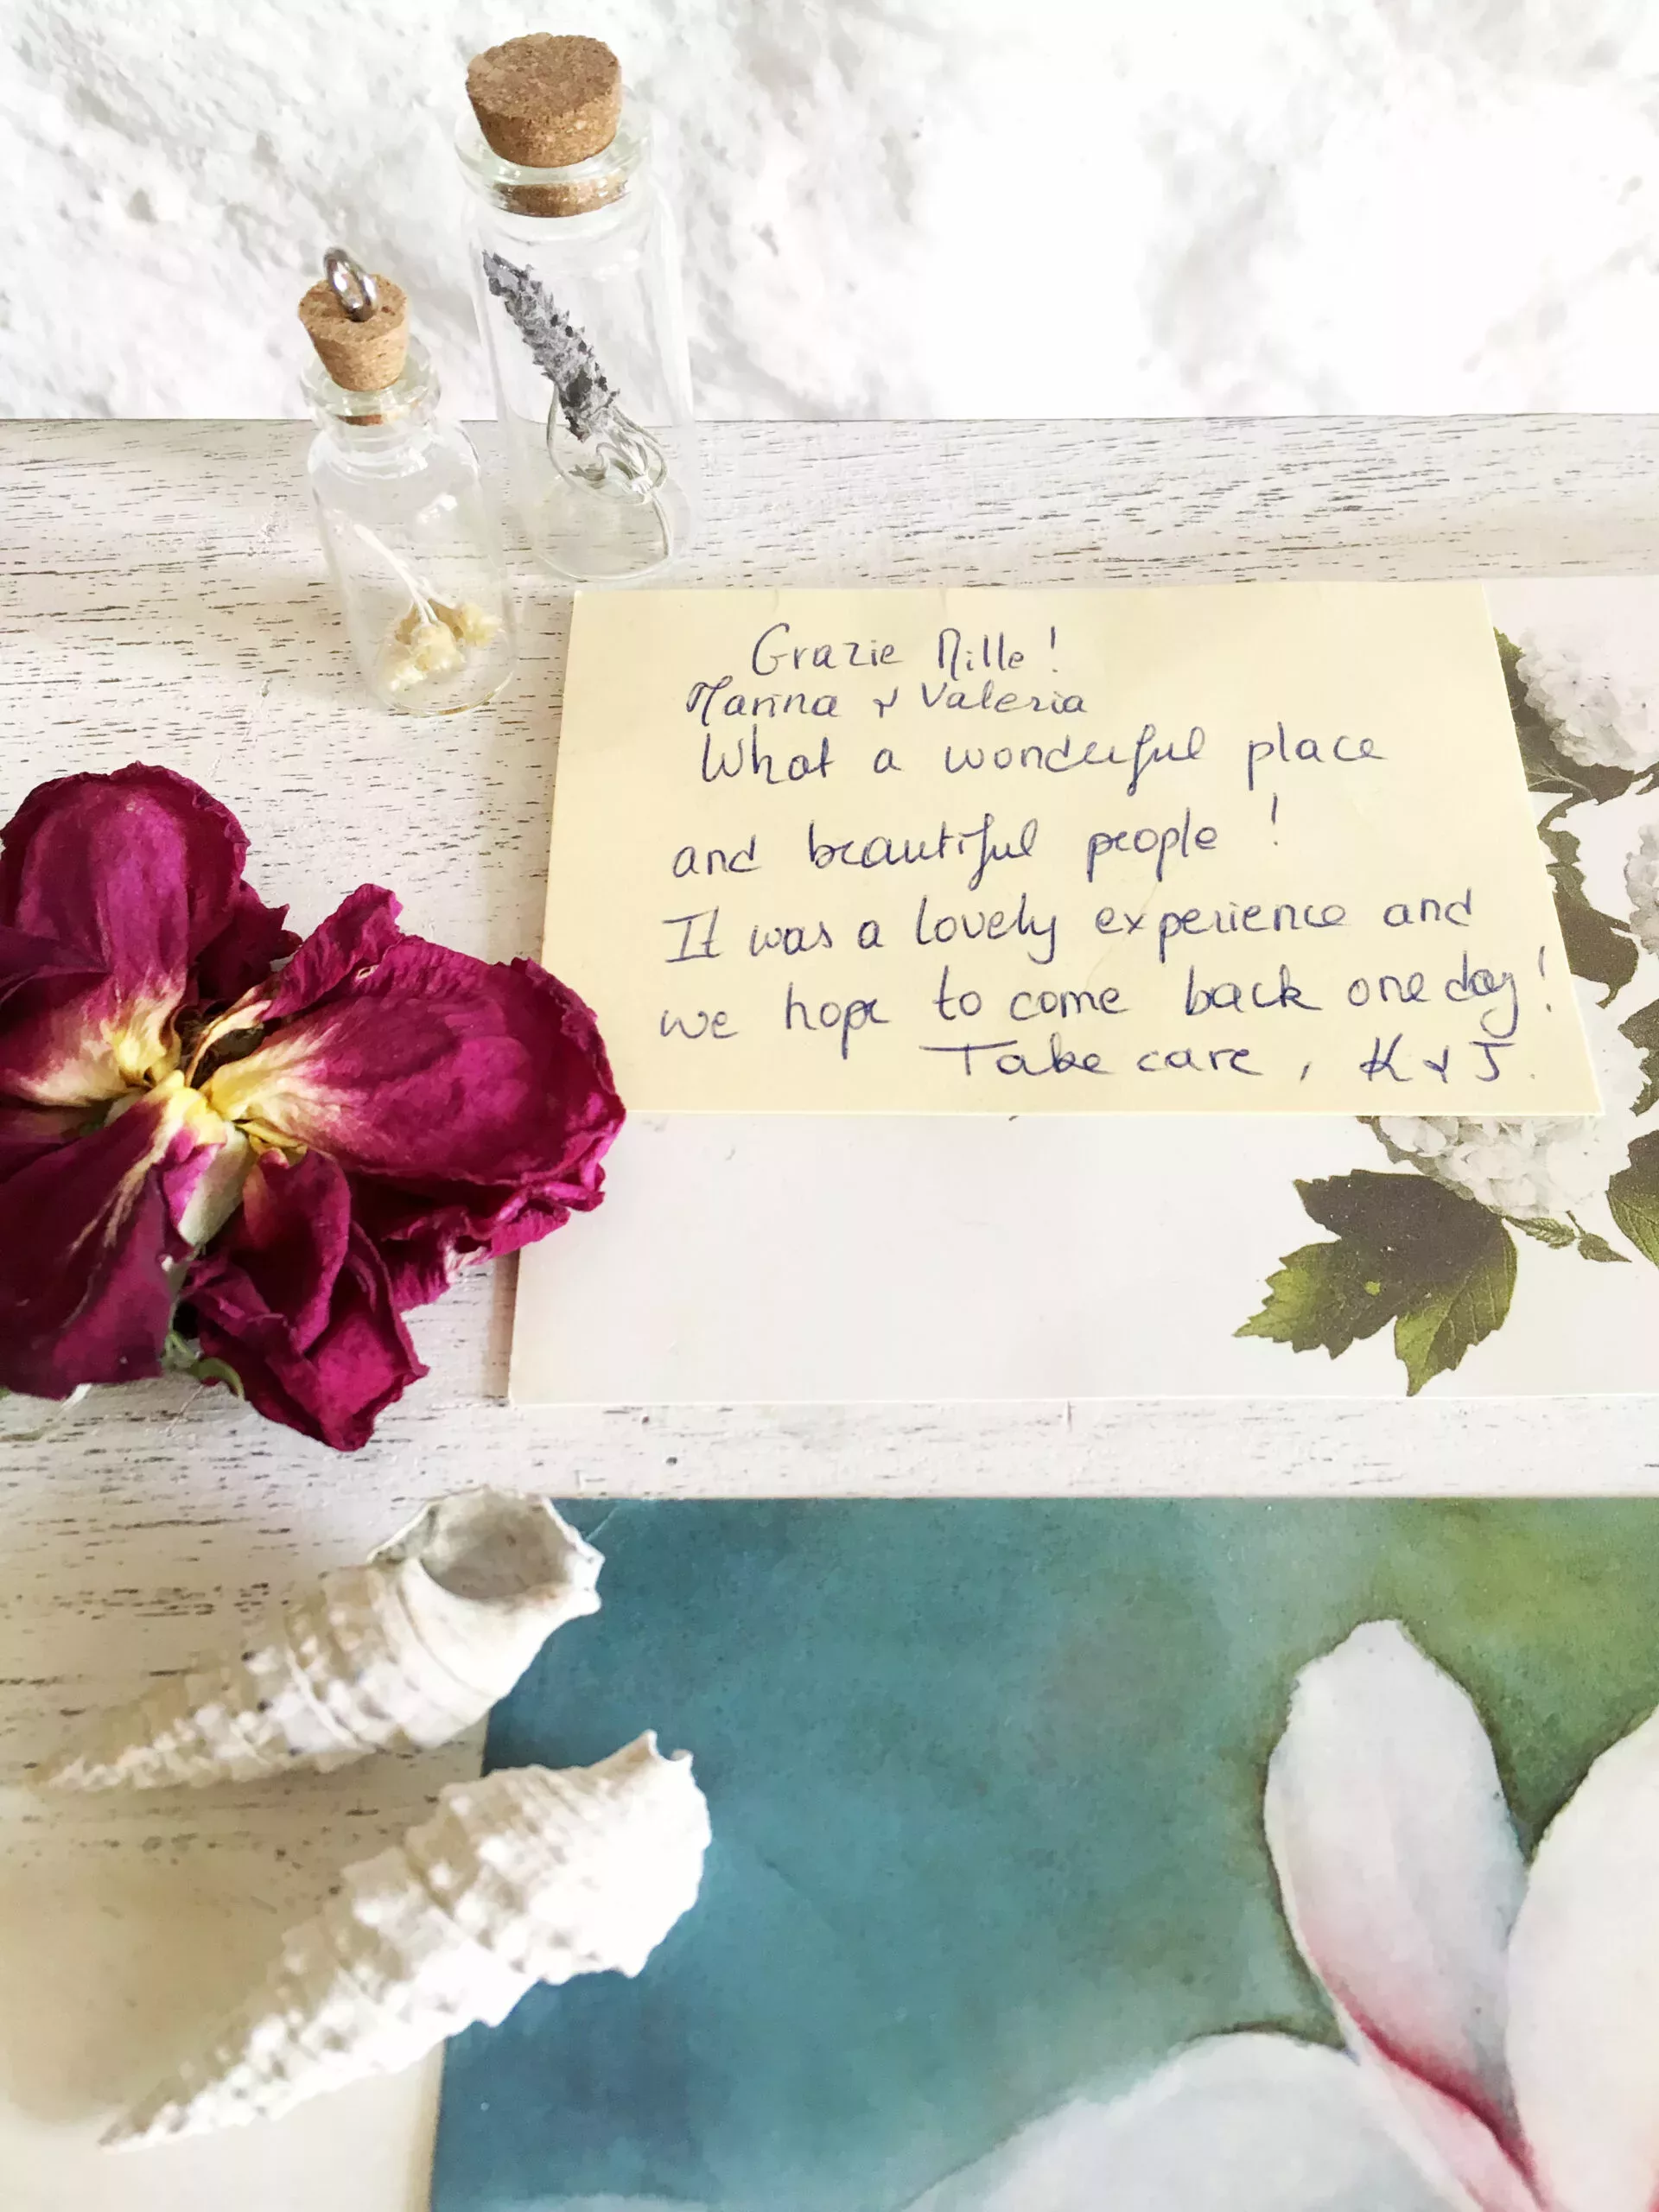 Grazie Mille!
Marina & Valeria
What a wonderful place
and beautiful people!
It was a lovely experience and
we hope to come back one day!
Take care, K & J.